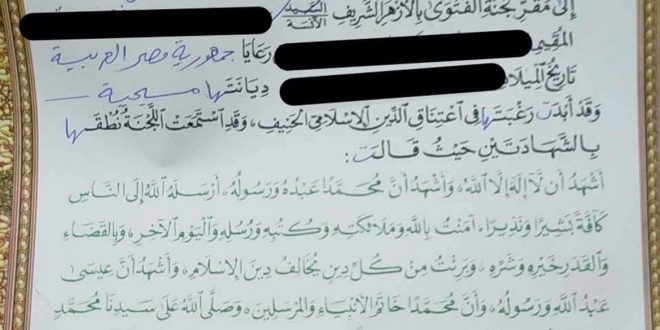 إِلَىٰ مَقَرِّ لَجْنَةِ ٱلْفَتْوَىٰ بِٱلْأَزْهَرِ ٱلشَّرِيفِ السيدة / الآنسة
المُقِيمِ رَعَايَا جمهورية مصر العربية
تَارِيخُ المِيلَادِ دِيَانَتُها مسيحية
وَقَدْ أَبْدَتْ رَغْبَتَها فِى اعْتِنَاقِ الدِّينِ الإِسْلَامِىِّ الحَنِيفِ، وَقَدِ ٱسْتَمَعَتِ ٱللَّجْنَةُ نُطْقَها
بِالشَّهَادَتَيْنِ حَيْثُ قَالَت:
أَشْهَدُ أَن لَّا إِلَهَ إِلَّا ٱللَّهُ، وَأَشْهَدُ أَنَّ مُحَمَّدًا عَبْدُهُ وَرَسُولُهُ، أَرْسَلَهُ ٱللَّهُ إِلَى النَّاسِ
كَافَّةً بَشِيرًا وَنَذِيرًا، آمَنْتُ بِاللَّهِ وَمَلَائِكَتِهِ وَكُتُبِهِ وَرُسُلِهِ وَٱلْيَوْمِ ٱلْآخِرِ، وَبِالقَضَاءِ
وَالقَدَرِ خَيْرِهِ وَشَرِّهِ، وَبَرِئْتُ مِنْ كُلِّ دِينٍ يُخَالِفُ دِينَ الإِسْلَامِ، وَأَشْهَدُ أَنَّ عِيسَى
عَبْدُ ٱللَّهِ وَرَسُولُهُ، وَأَنَّ مُحَمَّدًا خَاتَمُ الأَنْبِيَاءِ وَالمُرْسَلِينَ، وَصَلَّى ٱللَّهُ عَلَى سَيِّدِنَا مُحَمَّدٍ